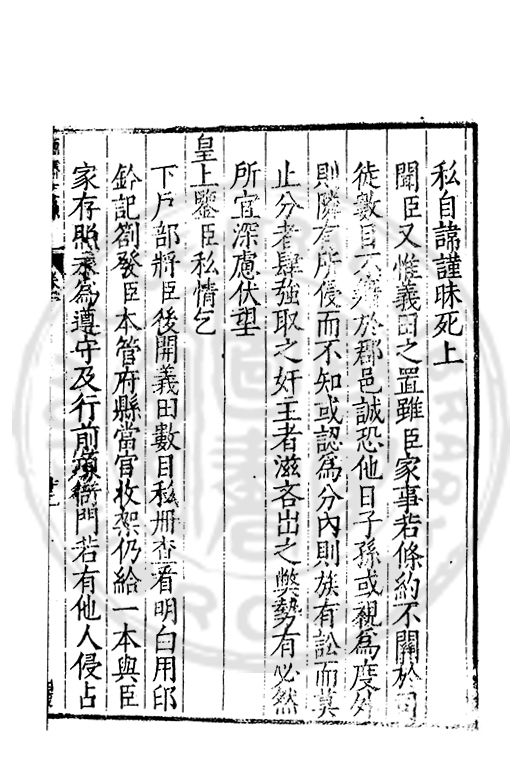 私自諱謹昧死上
聞臣又惟義田之置雖臣家事若條約不關於司
徒數目不籍於郡邑誠恐他日子孫或視為度外
則隣有所侵而不知或認為分內則族有訟而莫
止分者肆強取之奸主者滋吝出之獘勢有必然
所宜深慮伏望
皇上鑒臣私情乞
下戶部將臣後開義田數目私冊查看明白用印
鈐記劄發臣本管府縣當官收架仍給一本與臣
家存照永為遵守及行前項衙門若有他人侵占